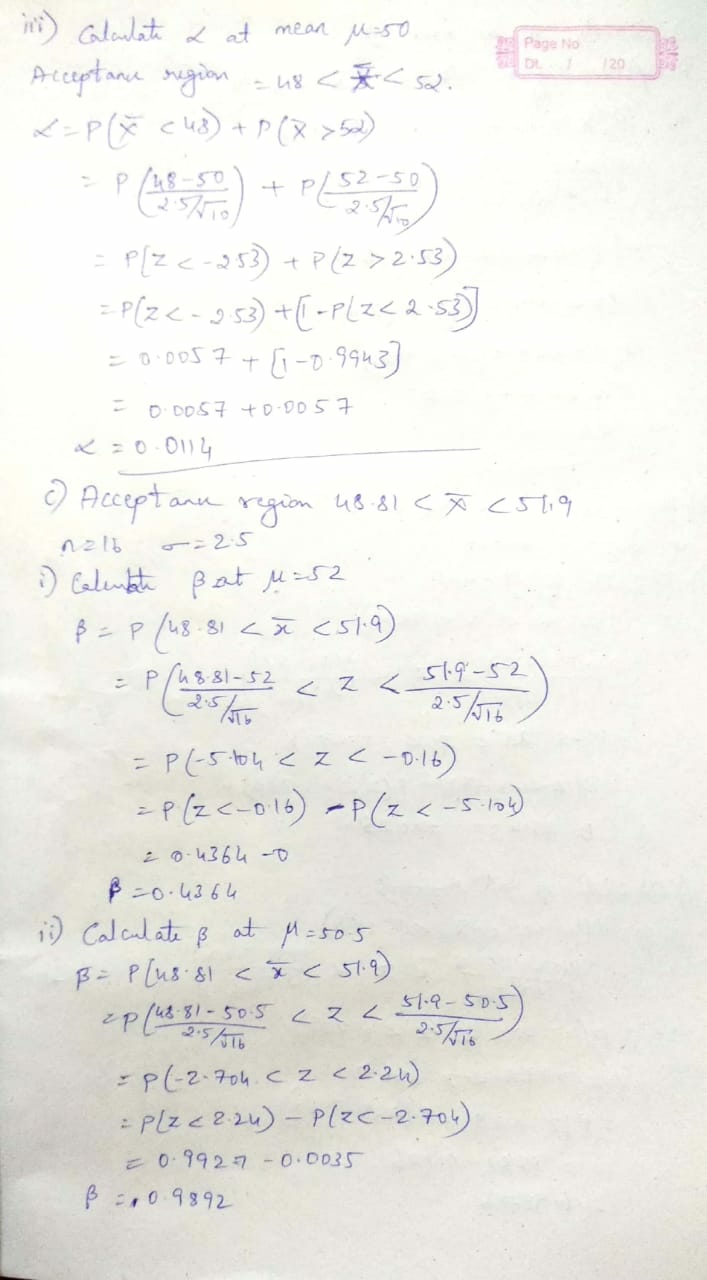 iii) Calculate α at mean μ=50
Page No
Dt. / /20
Acceptance region = 48 < x̄ < 52.
α = P(x̄ < 48) + P(x̄ > 52)
= P((48-50)/(2.5/√10)) + P((52-50)/(2.5/√10))
= P(z < -2.53) + P(z > 2.53)
= P(z < -2.53) + [1 - P(z < 2.53)]
= 0.0057 + [1-0.9943]
= 0.0057 + 0.0057
α = 0.0114
c) Acceptance region 48.81 < x̄ < 51.9
n=16 σ=2.5
i) Calculate β at μ=52
β = P(48.81 < x̄ < 51.9)
= P((48.81-52)/(2.5/√16) < z < (51.9-52)/(2.5/√16))
= P(-5.104 < z < -0.16)
= P(z < -0.16) - P(z < -5.104)
= 0.4364 - 0
β = 0.4364
ii) Calculate β at μ=50.5
β = P(48.81 < x̄ < 51.9)
= P((48.81-50.5)/(2.5/√16) < z < (51.9-50.5)/(2.5/√16))
= P(-2.704 < z < 2.24)
= P(z < 2.24) - P(z < -2.704)
= 0.9927 - 0.0035
β = 0.9892